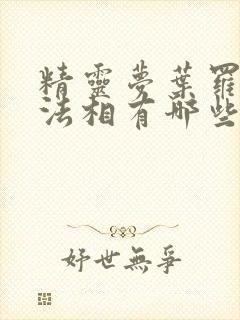 精靈夢葉羅
法相有哪些
妤世無爭